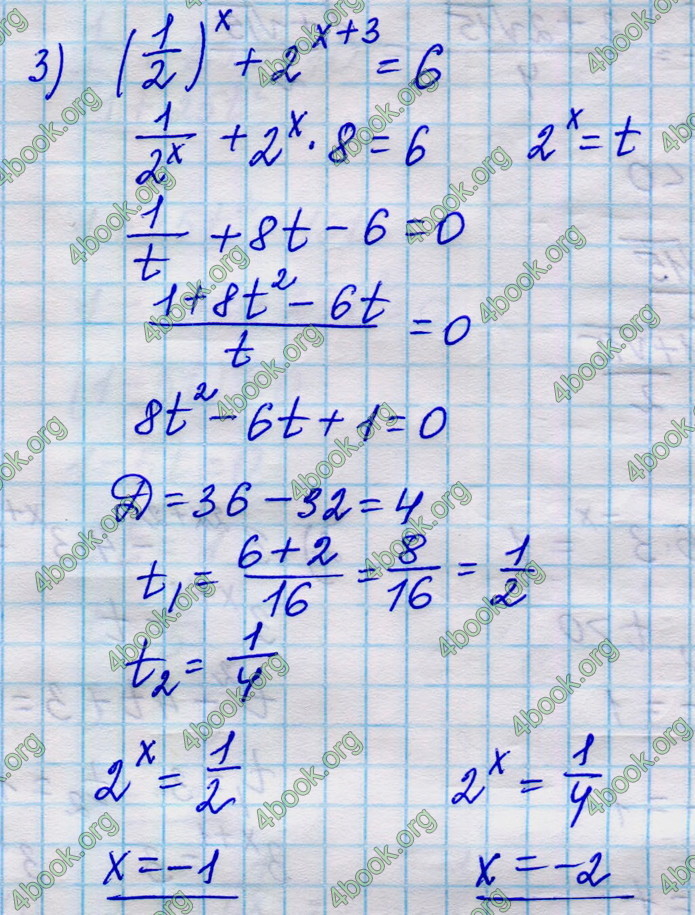 3) (1/2)^x + 2^(x+3) = 6
1/2^x + 2^x · 8 = 6    2^x = t
1/t + 8t − 6 = 0
(1 + 8t² − 6t)/t = 0
8t² − 6t + 1 = 0
D = 36 − 32 = 4
t₁ = (6+2)/16 = 8/16 = 1/2
t₂ = 1/4
2^x = 1/2    2^x = 1/4
x = −1    x = −2
4book.org